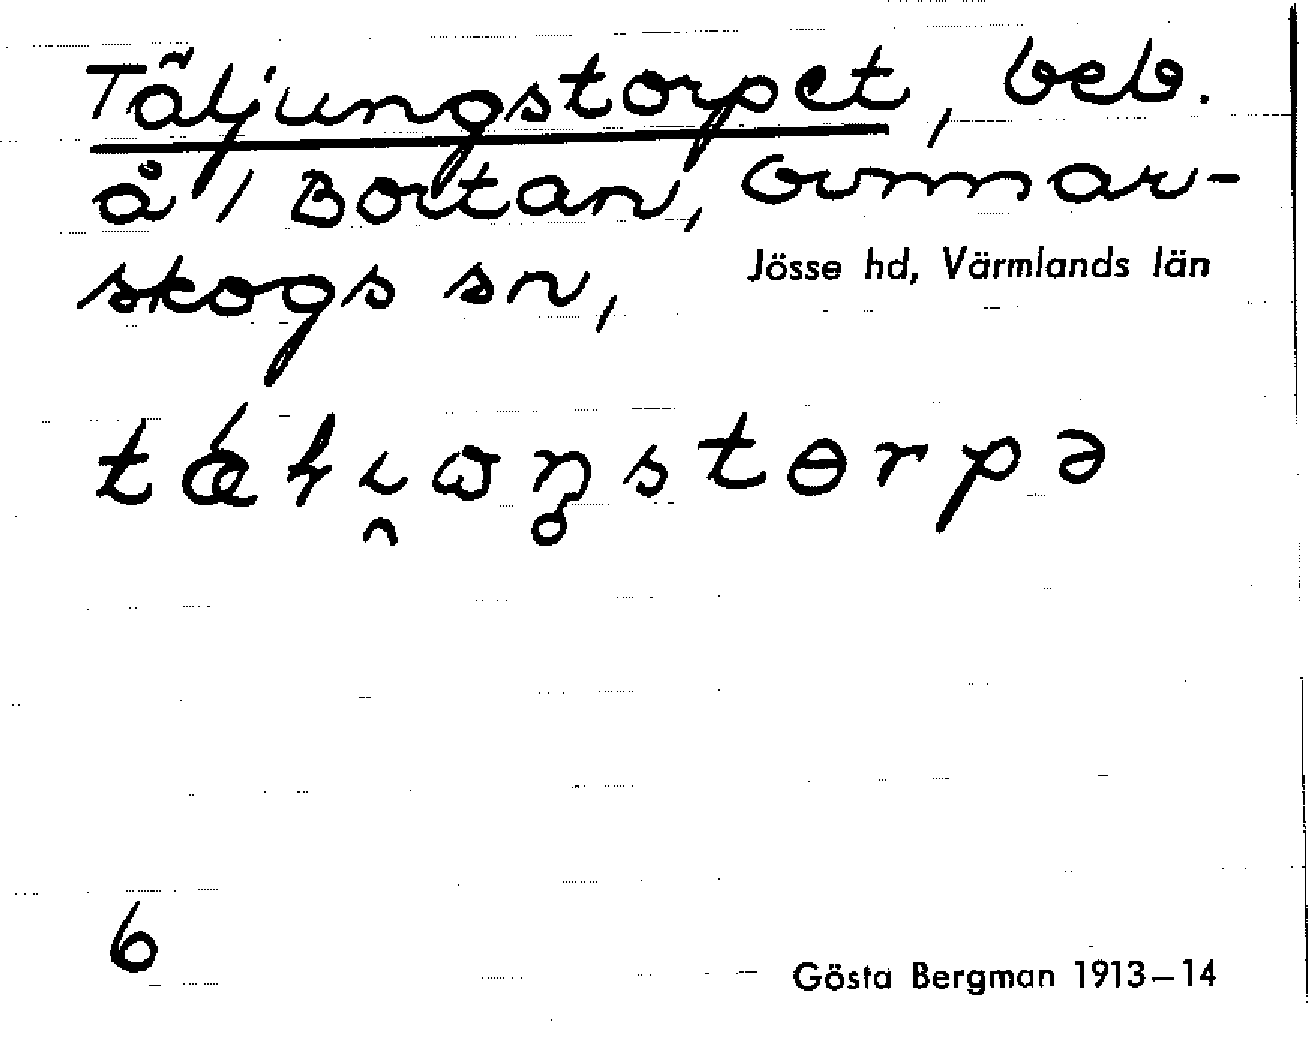 Täljungstorpet, beb.
å 1 Bortan, Gunnar-
skogs sn, Jösse hd, Värmlands län
6
Gösta Bergman 1913–14